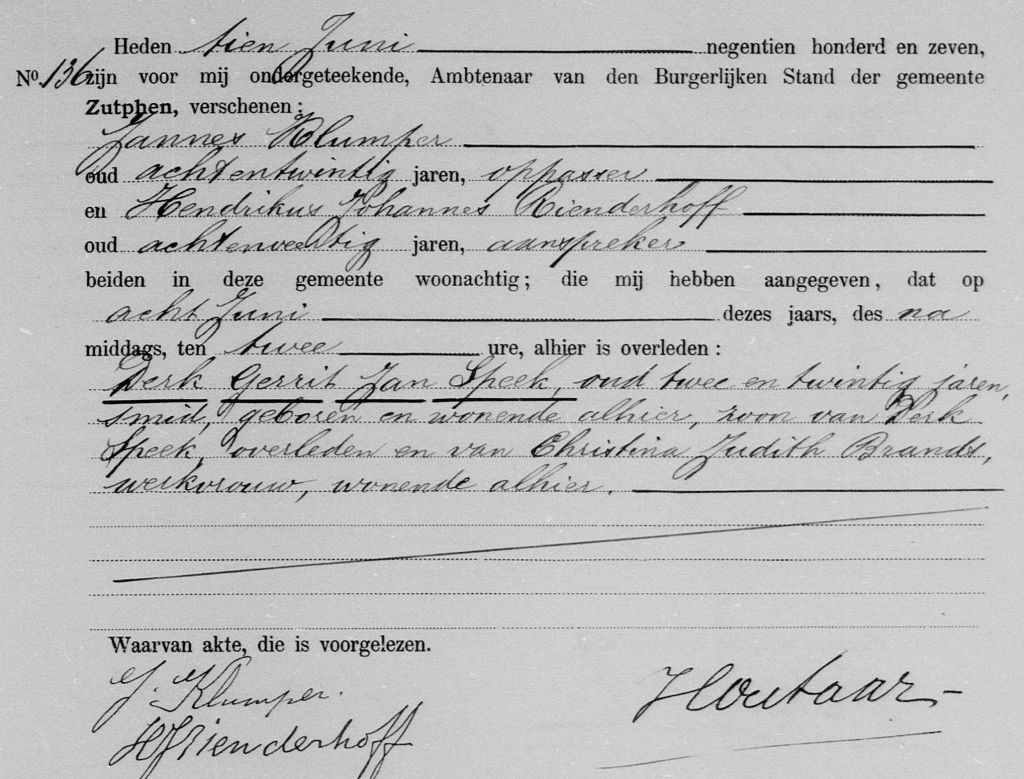 Heden tien Juni negentien honderd en zeven,
No. 136 zijn voor mij ondergeteekende, Ambtenaar van den Burgerlijken Stand der gemeente
Zutphen, verschenen:
Jannes Klumper
oud achtentwintig jaren, oppasser
en Hendrikus Johannes Rienderhoff
oud achtenveertig jaren, aanspreker
beiden in deze gemeente woonachtig; die mij hebben aangegeven, dat op
acht Juni dezes jaars, des na
middags, ten twee ure, alhier is overleden:
Derk Gerrit Jan Speek, oud twee en twintig jaren,
smid, geboren en wonende alhier, zoon van Derk
Speek, overleden en van Christina Judith Brands,
werkvrouw, wonende alhier.
Waarvan akte, die is voorgelezen.
J. Klumper.
HJRienderhoff
Houtaar